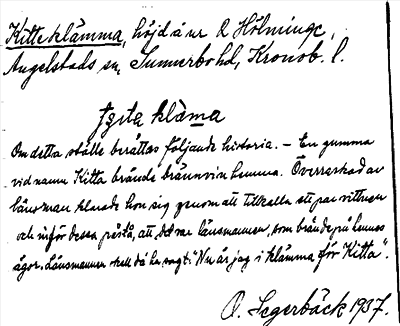 Kitteklämma, höjd å nr 2 Hölminge,
Angelstads sn, Sunnerbo hd, Kronob. l.
kläma
Om detta ställe berättas följande historia. – En gumma
vid namn Kitta brände brännvin hemma. Överraskad av
länsman klarade hon sig genom att tillkalla ett par vittnen
och inför dessa påstå, att det var länsmannen, som brände på hennes
ägor. Länsmannen skall då ha sagt: "Nu är jag i klämma för Kitta".
O. Segerbäck 1937.